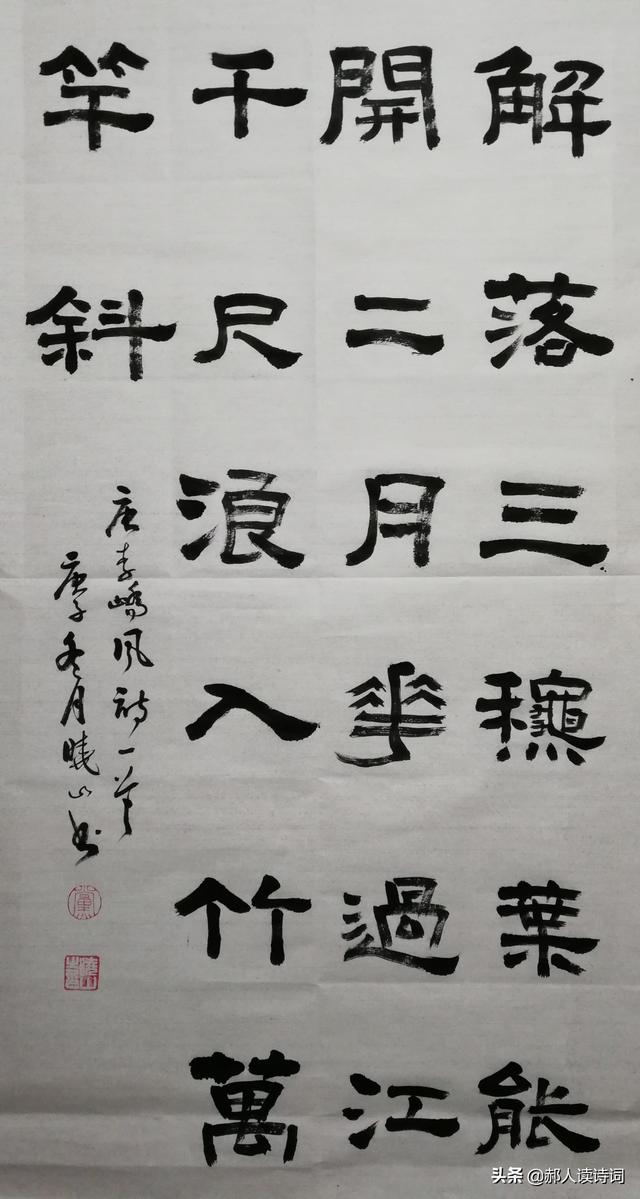 解落三龝葉能
開二月華過江
千尺浪入竹萬
竿斜
唐李嶠風詩一首
庚子冬月曉山书
黨
头条 @郝人读诗词